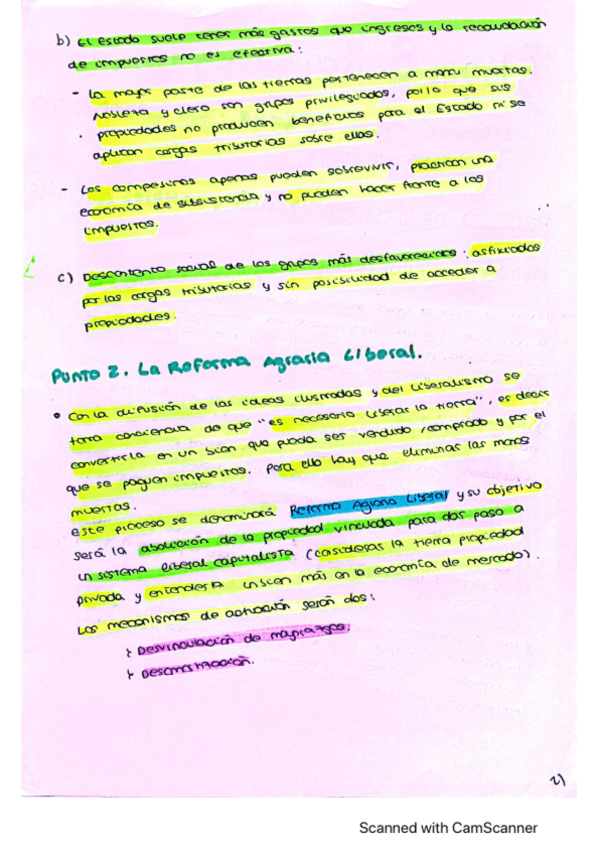 b) El Estado suele tener más gastos que ingresos y la recaudación
de impuestos no es efectiva:
- La mayor parte de las tierras pertenecen a manos muertas.
Nobleza y clero son grupos privilegiados, por lo que sus
propiedades no producen beneficios para el Estado ni se
aplican cargas tributarias sobre ellas.
- Los campesinos apenas pueden sobrevivir, practican una
economía de subsistencia y no pueden hacer frente a los
impuestos.
c) Descontento social de los grupos más desfavorecidos: asfixiados
por las cargas tributarias y sin posibilidad de acceder a
propiedades.
Punto 2. La Reforma Agraria Liberal.
• Con la difusión de las ideas ilustradas y del liberalismo se
toma conciencia de que "es necesario liberar la tierra", es decir
convertirla en un bien que pueda ser vendido comprado y por el
que se paguen impuestos. Para ello hay que eliminar las manos
muertas.
Este proceso se denominará Reforma Agraria Liberal y su objetivo
será la abolición de la propiedad vinculada para dar paso a
un sistema liberal capitalista (considerar la tierra propiedad
privada y entenderla un bien más en la economía de mercado).
Los mecanismos de actuación serán dos:
Desvinculación de mayorazgo.
Desamortización.
2)
Scanned with CamScanner